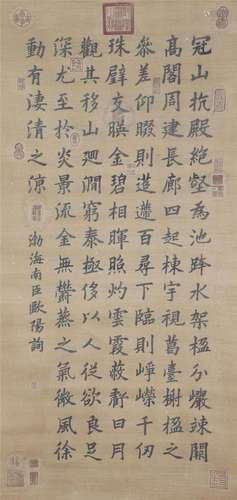 冠山抗殿絕壑為池跨水架楹分巖竦闕
高閣周建長廊四起棟宇視葛臺榭楹之
參差仰則迢遰百尋下臨則崢嶸千仞
珠璧交暎金碧相暉照灼雲霞蔽虧日月
觀其移山迴澗窮泰極侈以人從欲良足
深尤至於炎景流金無鬱蒸之氣微風徐
動有淒清之涼
渤海南臣歐陽詢